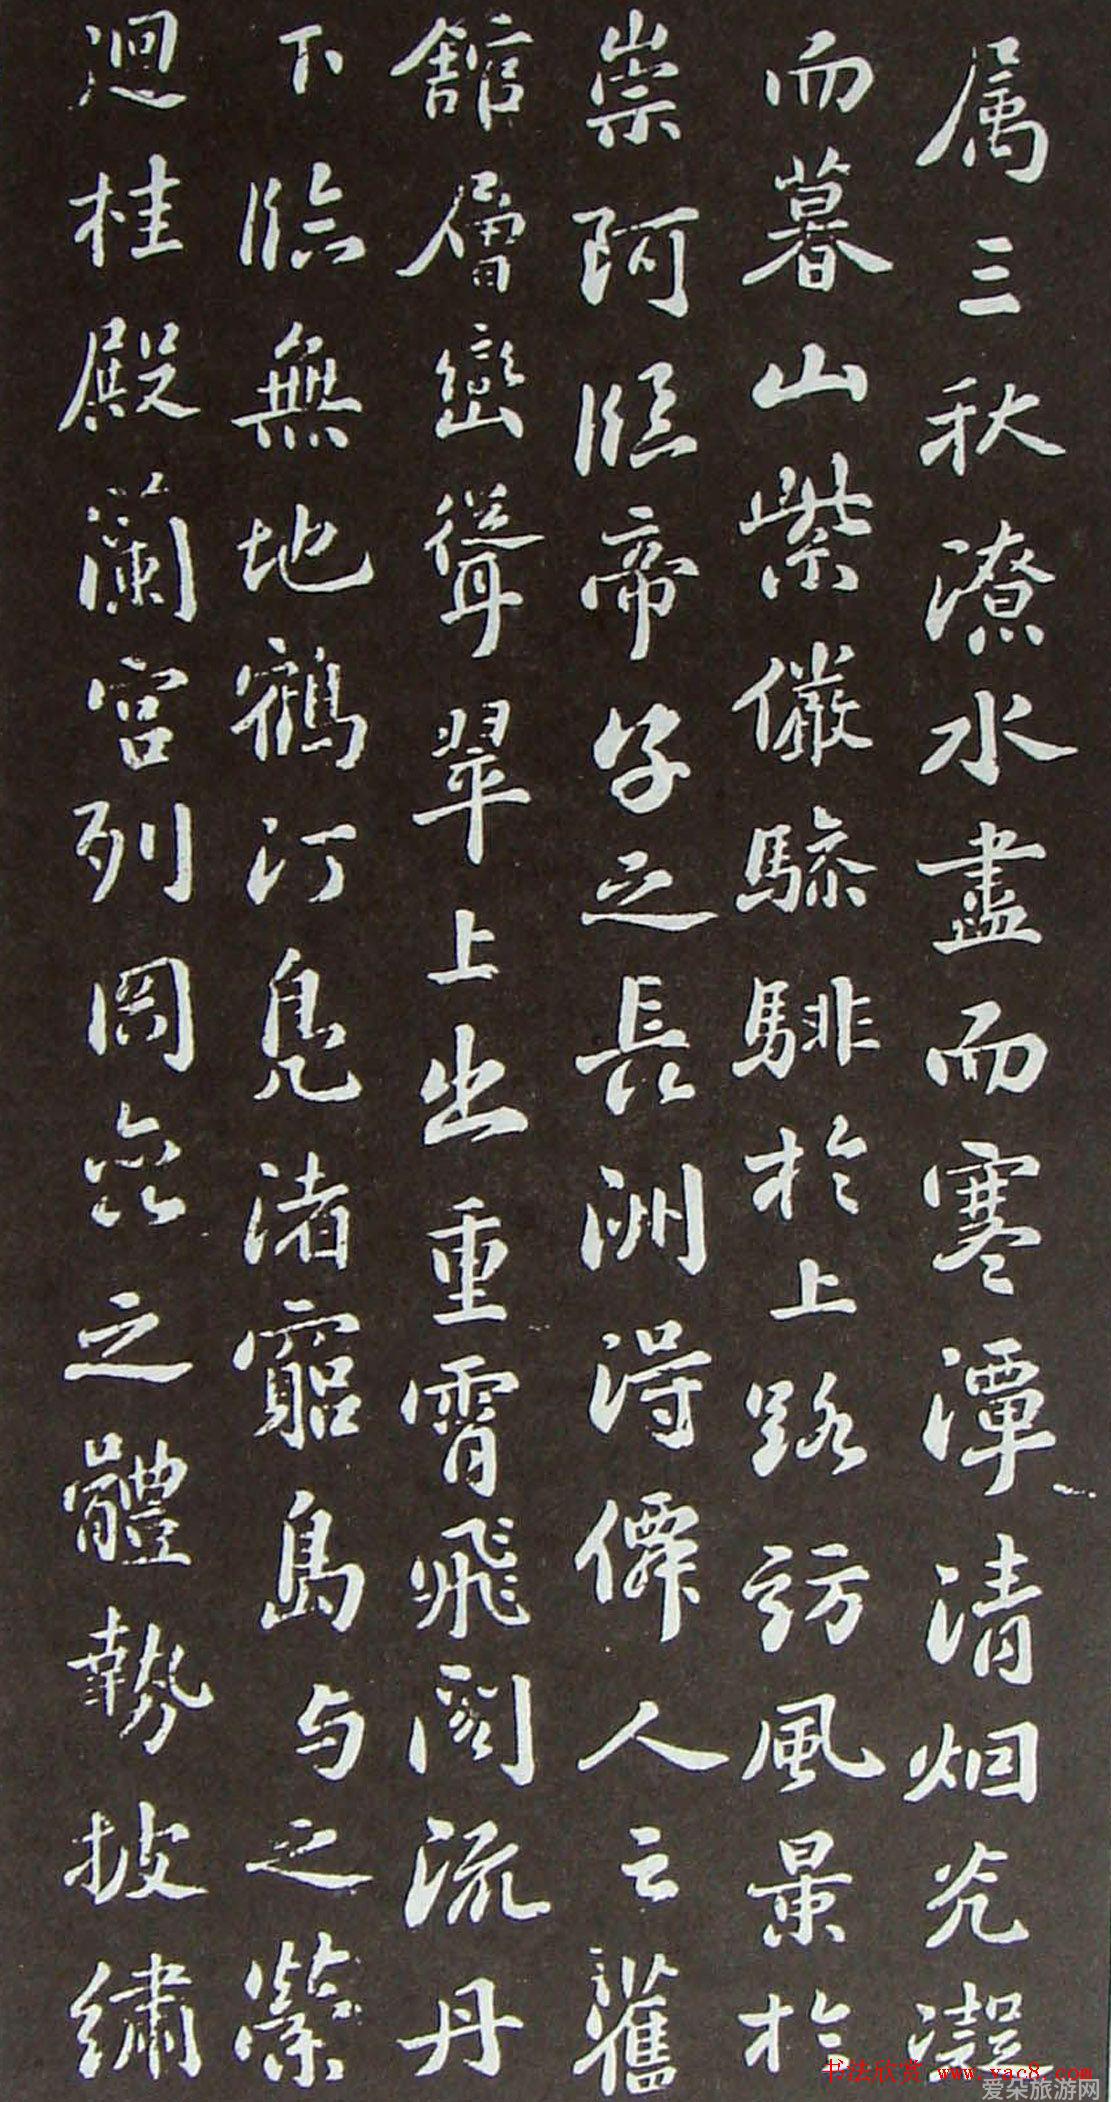 属三秋潦水盡而寒潭清烟光凝
而暮山紫儼驂騑於上路訪風景於
崇阿臨帝子之長洲得僊人之舊
舘層巒聳翠上出重霄飛閣流丹
下臨無地鶴汀鳧渚窮島与之縈
迴桂殿蘭宮列岡巒之體勢披繡
书法欣赏 www.yac8.com
爱朵旅游网